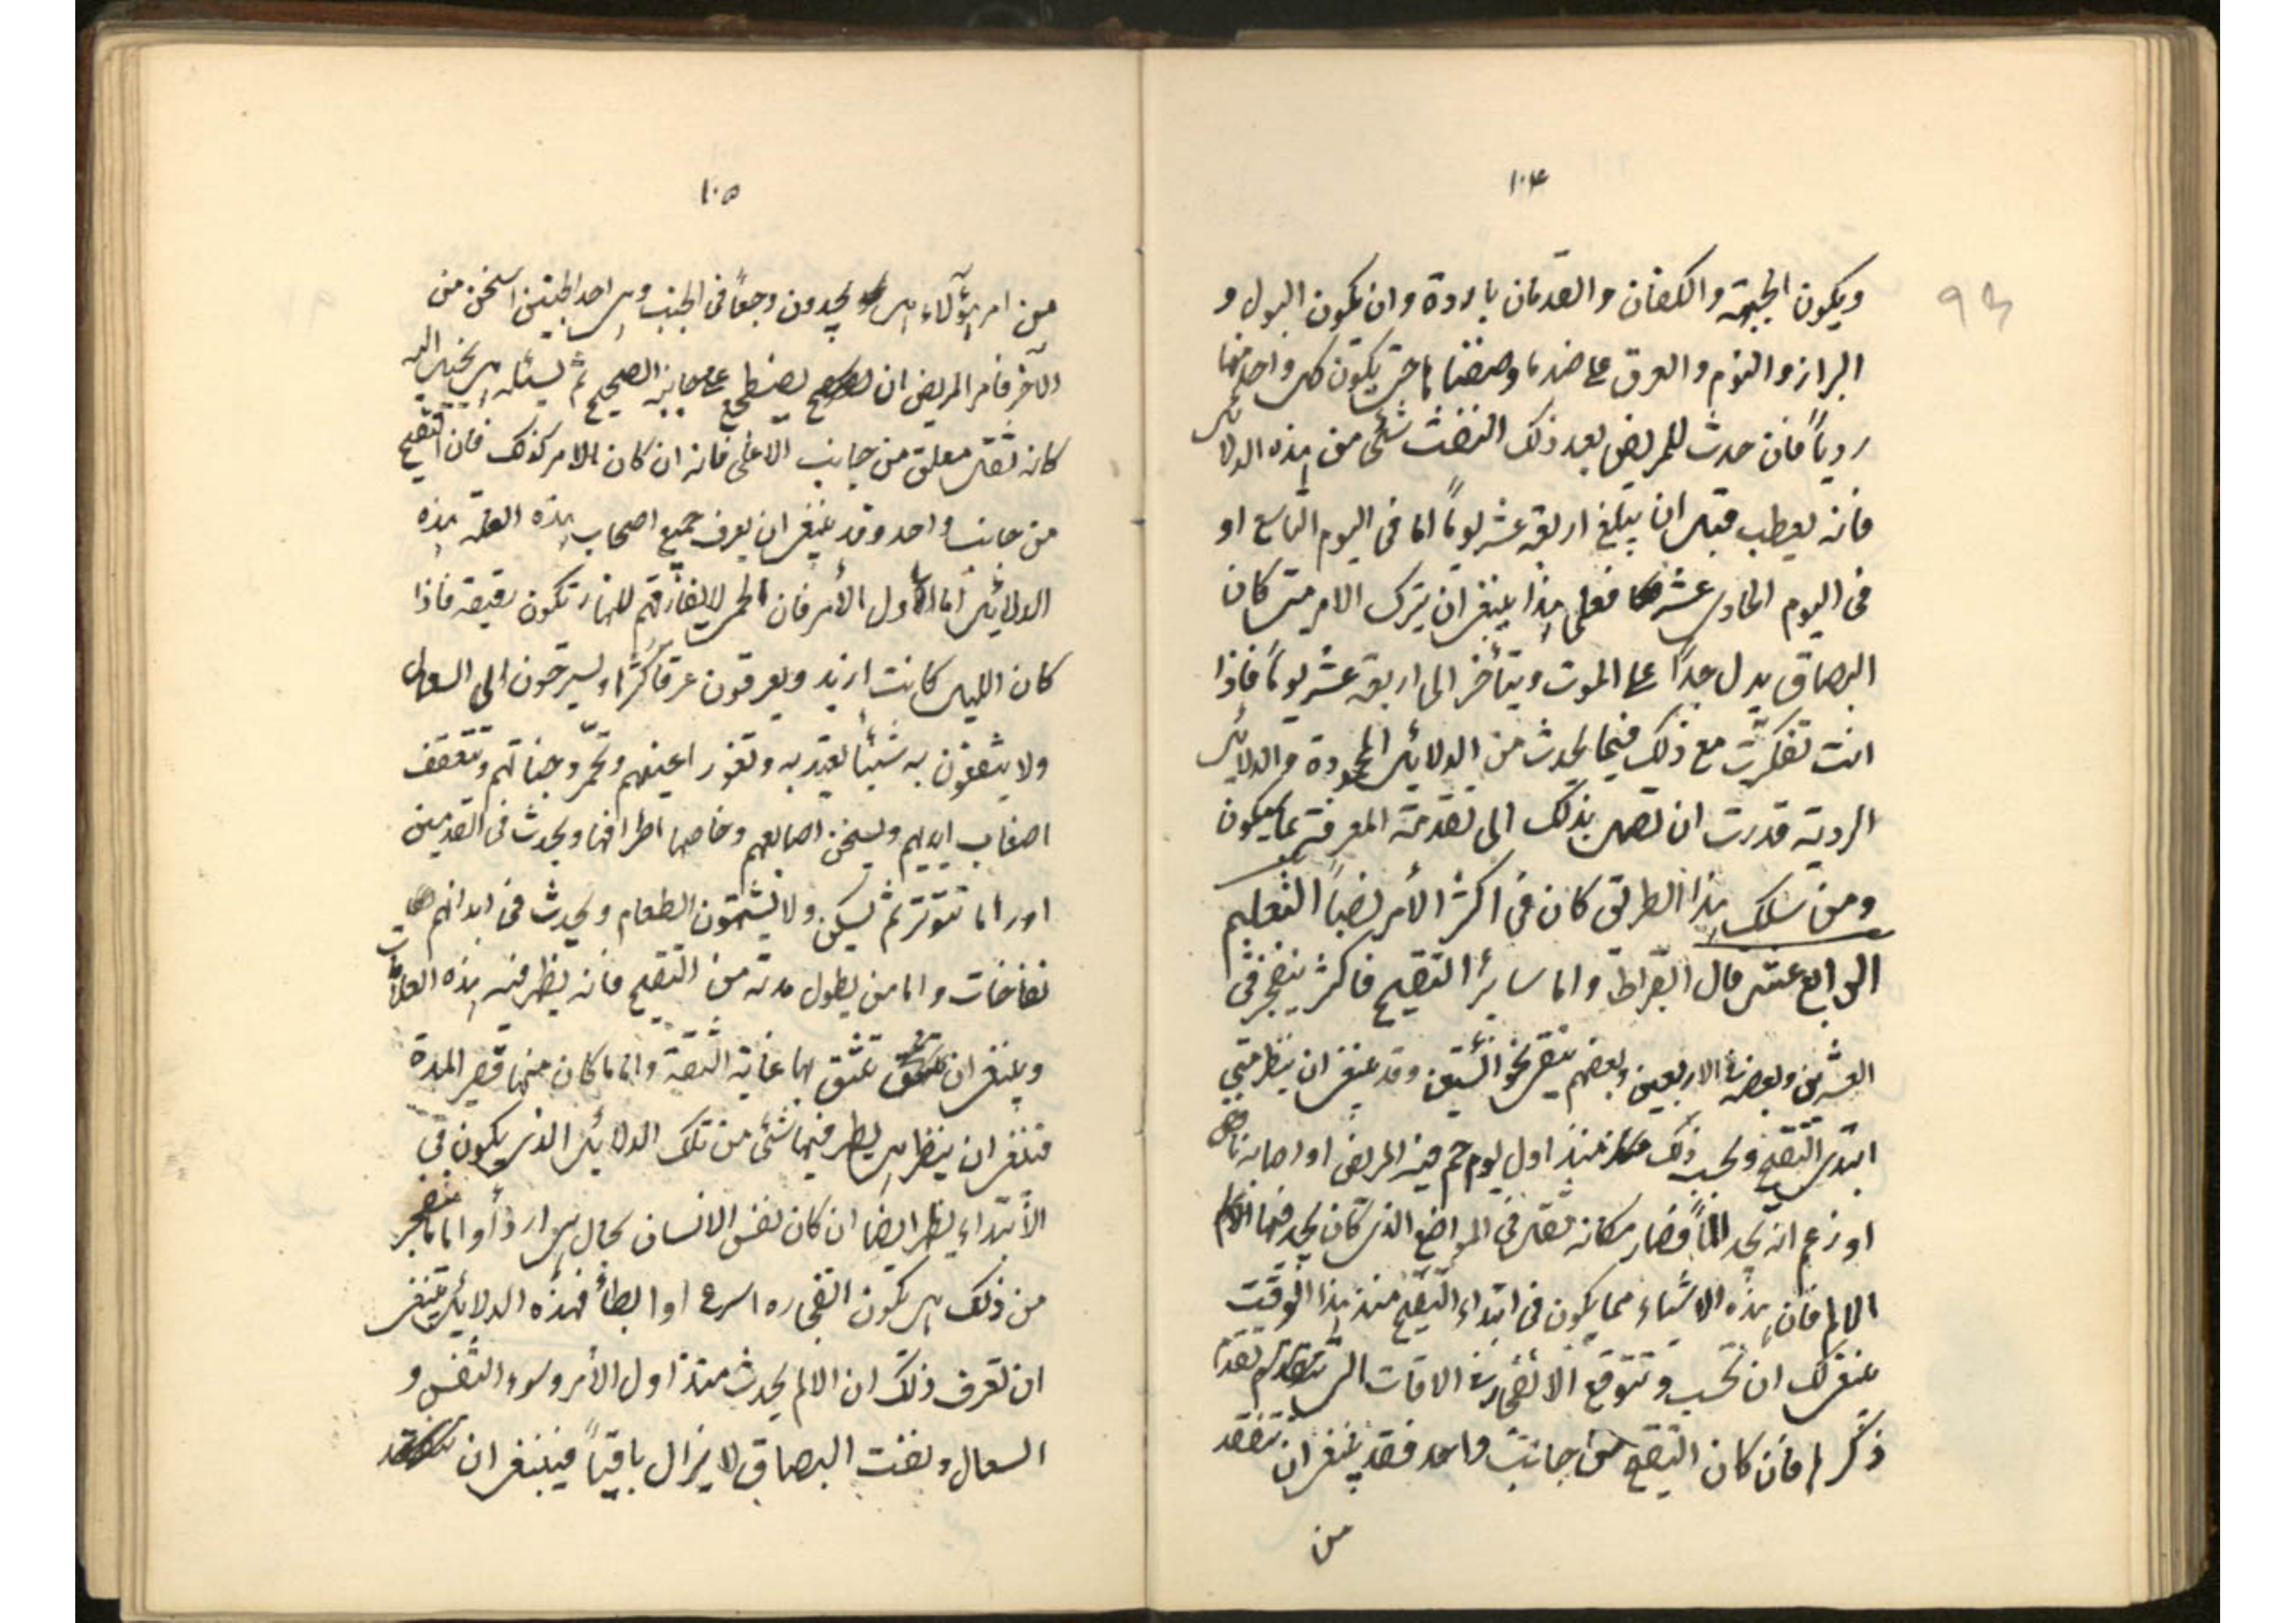 ١٠٤
ويكون الجبهة والكفان والقدمان باردة وان يكون البول و
البراز والنوم والعرق على ضد ما وصفنا حتى يكون كل واحد منها
رديا فان حدث للمريض بعد ذلك النفث شئ من هذه الدلائل
فانه يعطب قبل ان يبلغ اربعة عشر يوماً اما فى اليوم التاسع او
فى اليوم الحادى عشر فعلى هذا ينبغى ان يترك الامر متى كان
البصاق يدل جداً على الموت ويتأخر الى اربعة عشر يوماً فاذا
انت تفكرت مع ذلك فيما يحدث من الدلائل المحمودة والدلائل
الردية قدرت ان تصل بذلك الى تقدمة المعرفة بما سيكون
ومن سلك هذا الطريق كان فى اكثر الأمر نصباً التعليم
الرابع عشر قال ابقراط واما ساير التقيح فاكثر ينفجر فى
العشرين وبعضه فى الاربعين وبعضهم نحو الستين وقد ينبغى ان ينظر متى
ابتدى التقيح ويحسب ذلك منذ اول يوم حم فيه المريض او اصابه نافض
او زعم انه يجد الماً فصار مكانه ثقل فى المواضع الذى كان يجد فيها الالم
الالم فان هذه الاشياء مما يكون فى ابتداء التقيح منذ هذا الوقت
ينبغى لك ان تحسب وتتوقع الانفجار فى الاقات التى تقدم
ذكرها فان كان التقيح من جانب واحد فقد ينبغى ان تتفقد
من
١٠٥
من امر هؤلاء هل يجدون وجعاً فى الجنب وهل احد الجنبين اسخن من
الآخر فامر المريض ان يضطجع على جانبه الصحيح ثم يسئله هل يخيل اليه
كانه ثقل معلق من جانب الاعلى فانه ان كان الامر كذلك فان التقيح
من جانب واحد وقد ينبغى ان يعرف جميع اصحاب هذه العلة بهذه
الدلائل اما اول الأمر فان الحمى لا يفارقهم للنهار تكون رقيقة فاذا
كان الليل كانت ازيد ويعرقون عرقاً كثيرا ويسترحون الى السعال
ولا ينفثون به شيئاً يعتد به وتغور اعينهم وتحمر وجناتهم وتتعقف
اصفاب ايديهم ويسخن اصابعهم وخاصها اطرافها ويحدث فى القدمين
اوراما تتوتر ثم تسكن ولا يشتهون الطعام ويحدث فى ابدانهم
نفاخات واما من يطول مدته من التقيح فانه يظهر فيه هذه العلامات
وينبغى ان تثق بها غاية الثقة واما ما كان منها قصير المدة
فينبغى ان ينظر هل يظهر فيها شئ من تلك الدلائل الذى يكون فى
الأبتداء ينظر ايضا ان كان نفس الانسان بحال هى اردأ واما ما ينفجر
من ذلك هل يكون انفجاره اسرع او ابطأ فهذه الدلائل ينبغى
ان تعرف ذلك ان الالم يحدث منذ اول الأمر وسوء النفس و
السعال ونفث البصاق لا يزال باقياً فينبغى ان